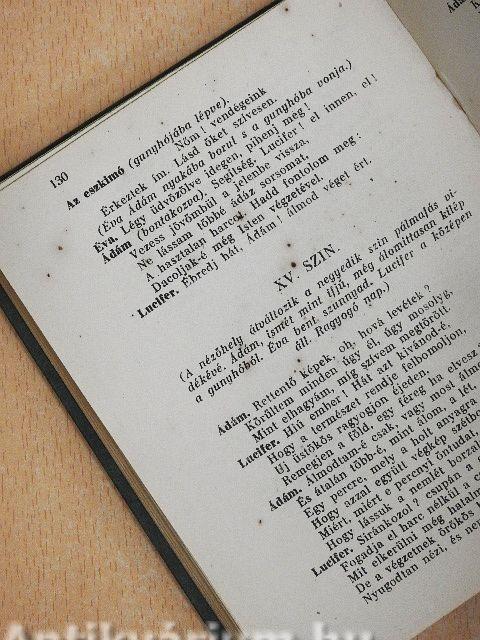 130
Az eszkimó (gunyhójába lépve).
Nőm! vendégeink
Érkeztek im. Lásd őket szivesen.
(Éva Ádám nyakába borul s a gunyhóba vonja.)
Éva. Légy üdvözölve idegen, pihenj meg!
Ádám (bontakozva). Segítség, Lucifer! el innen, el!
Vezess jövőmbül a jelenbe vissza,
Ne lássam többé ádáz sorsomat,
A hasztalan harcot. Hadd fontolom meg:
Dacoljak-é még Isten végzetével.
Lucifer. Ébredj hát, Ádám! álmod véget ért.
XV. SZIN.
(A nézőhely átváltozik a negyedik szin pálmafás vi-
dékévé. Ádám, ismét mint ifjú, még álomittasan kilép
a gunyhóból. Éva bent szunnyad. Lucifer a középen
áll. Ragyogó nap.)
Ádám. Rettentő képek, oh, hová levétek?
Körültem minden úgy él, úgy mosolyg,
Mint elhagyám, míg szívem megtörött.
Lucifer. Hiú ember! Hát azt kívánod-é,
Hogy a természet rendje felbomoljon,
Uj üstökös ragyogjon éjeden,
Remegjen a föld, egy féreg ha elvesz
Ádám. Álmodtam-é csak, vagy most
És átalán több-é, mint álom, a lét,
Egy percre, mely a holt anyagra
Hogy azzal együtt végkép
Miért, miért e percnyi öntudat,
Hogy lássuk a nemlét
Lucifer. Siránkozol? csupán a
Fogadja el harc nélkül a
Mit elkerülni még
De a végzetnek örökös
Nyugodtan nézi, és
Antikvárium.hu